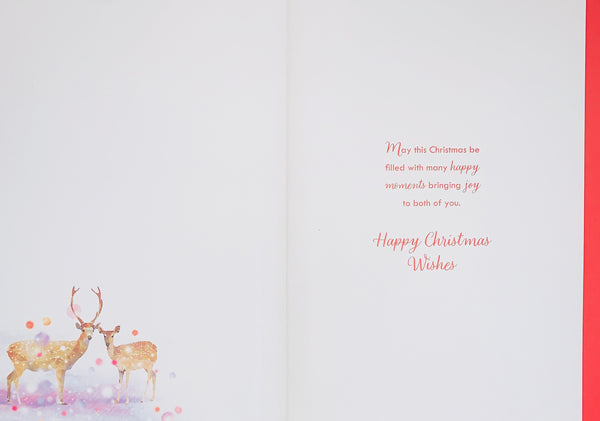 May this Christmas be
filled with many happy
moments bringing joy
to both of you.
Happy Christmas
Wishes